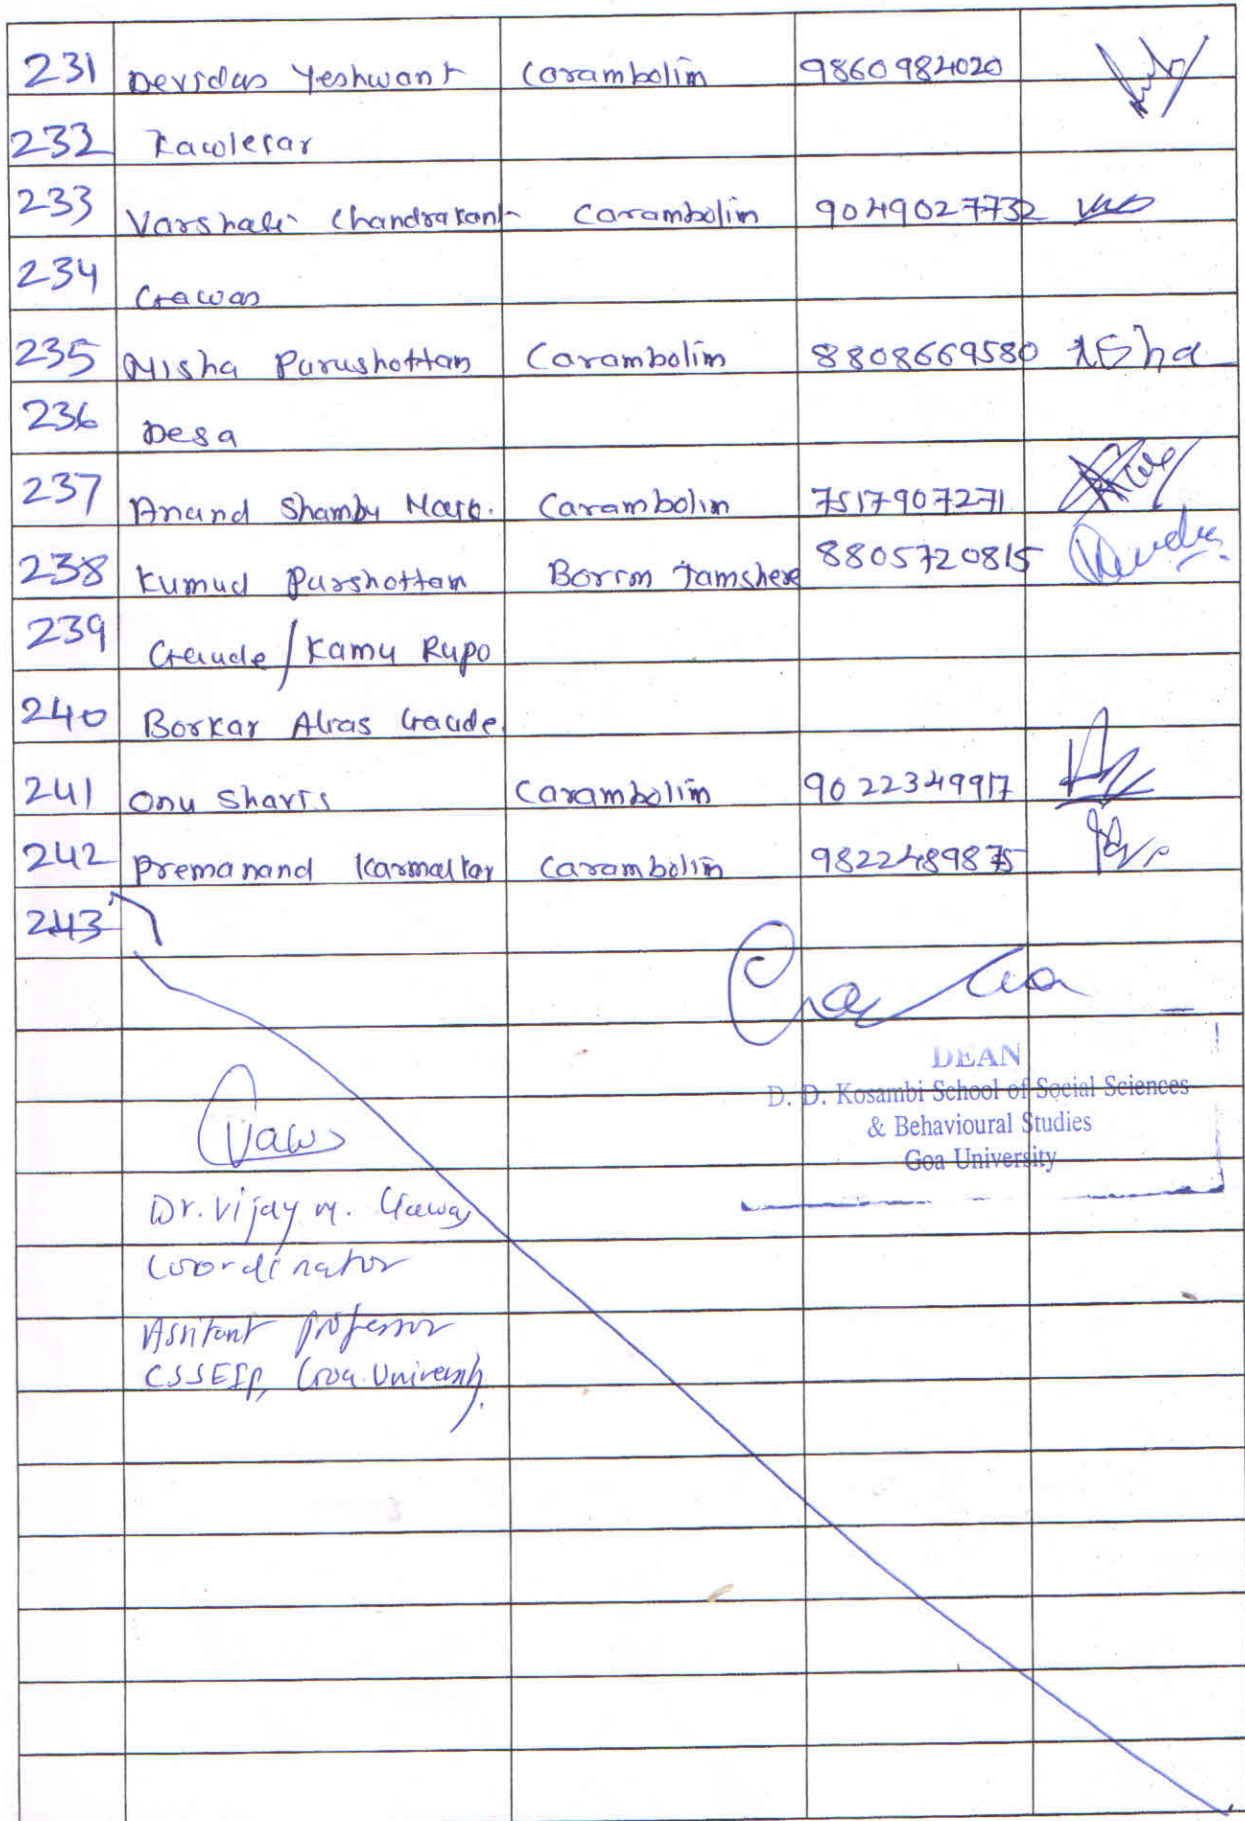 231 Devidas Yeshwant Carambolim 9860984020
232 Kawlekar
233 Varshali Chandrakant Carambolim 9049027732
234 Gawas
235 Nisha Purushottam Carambolim 8808669580 Nisha
236 Desa
237 Anand Shambu Carambolim 7517907271
238 Kumud Purshottam Borim Jamshere 8805720815
239 Gaude / Kamu Rupo
240 Borkar Alias Gaude
241 Onu Sharis Carambolim 9022349917
242 Premanand Karmalkar Carambolim 9822489875
243
DEAN
D. D. Kosambi School of Social Sciences
& Behavioural Studies
Goa University
Dr. Vijay M. Gawas
Coordinator
Assitant professor
CSSEIP, Goa University